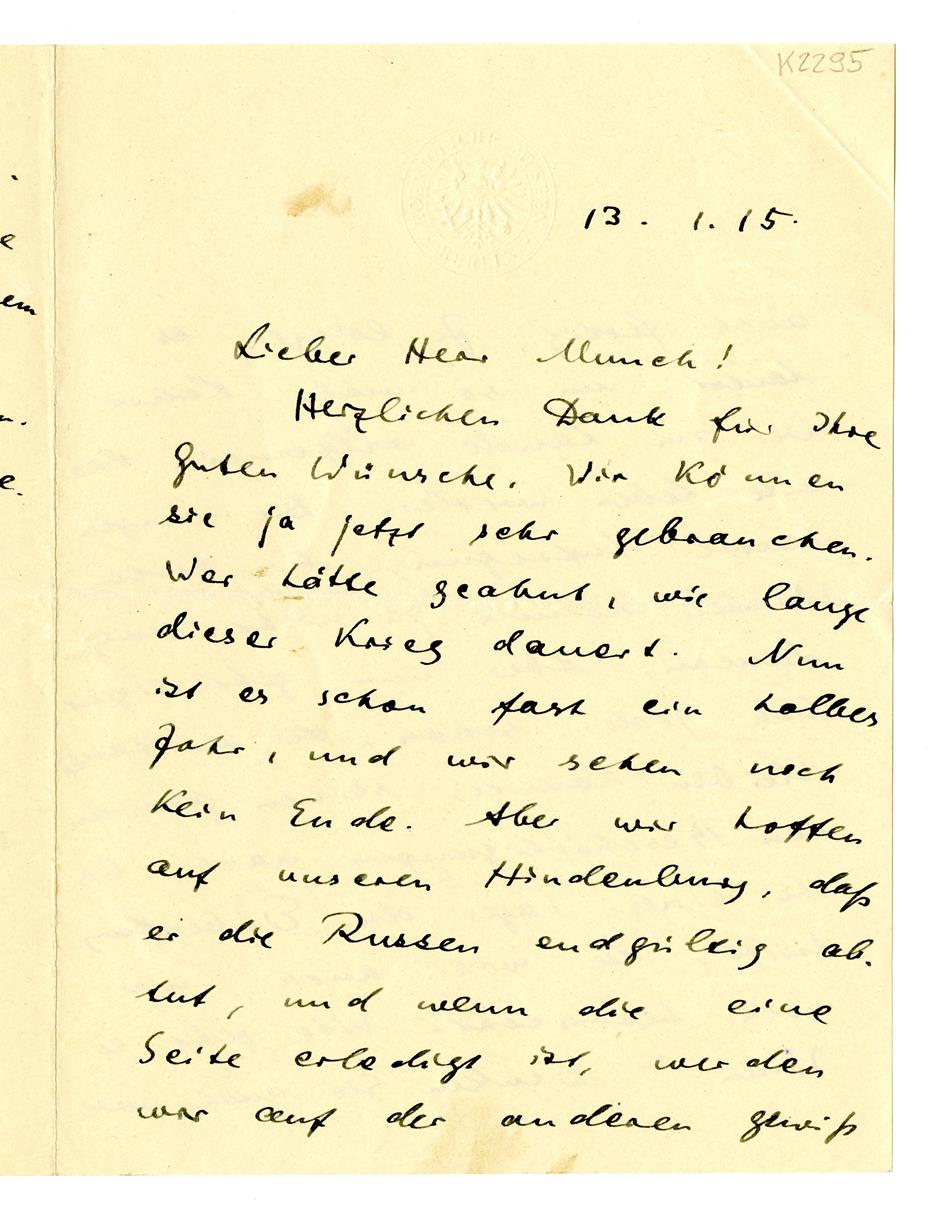 K2295
KÖNIGLICHE MUSEEN
BERLIN
13. 1. 15.
Lieber Herr Munch!
Herzlichen Dank für Ihre
guten Wünsche. Wir können
sie ja jetzt sehr gebrauchen.
Wer hätte geahnt, wie lange
dieser Krieg dauert. Nun
ist es schon fast ein halbes
Jahr, und wir sehen noch
kein Ende. Aber wir hoffen
auf unseren Hindenburg, daß
er die Russen endgültig ab-
tut, und wenn die eine
Seite erledigt ist, werden
wir auf der anderen gewiß
e
em
n.
e.